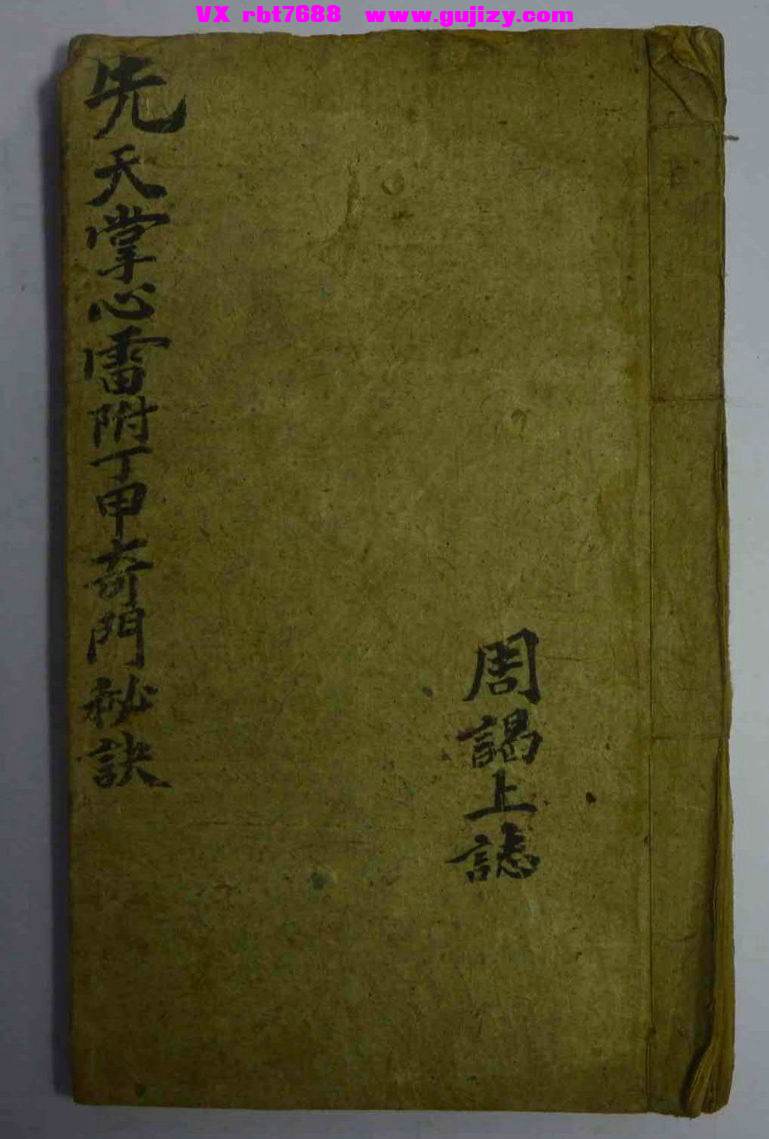 VX rbt7688 www.gujizy.com
先天掌心雷附丁甲奇門秘訣
周謁上誌